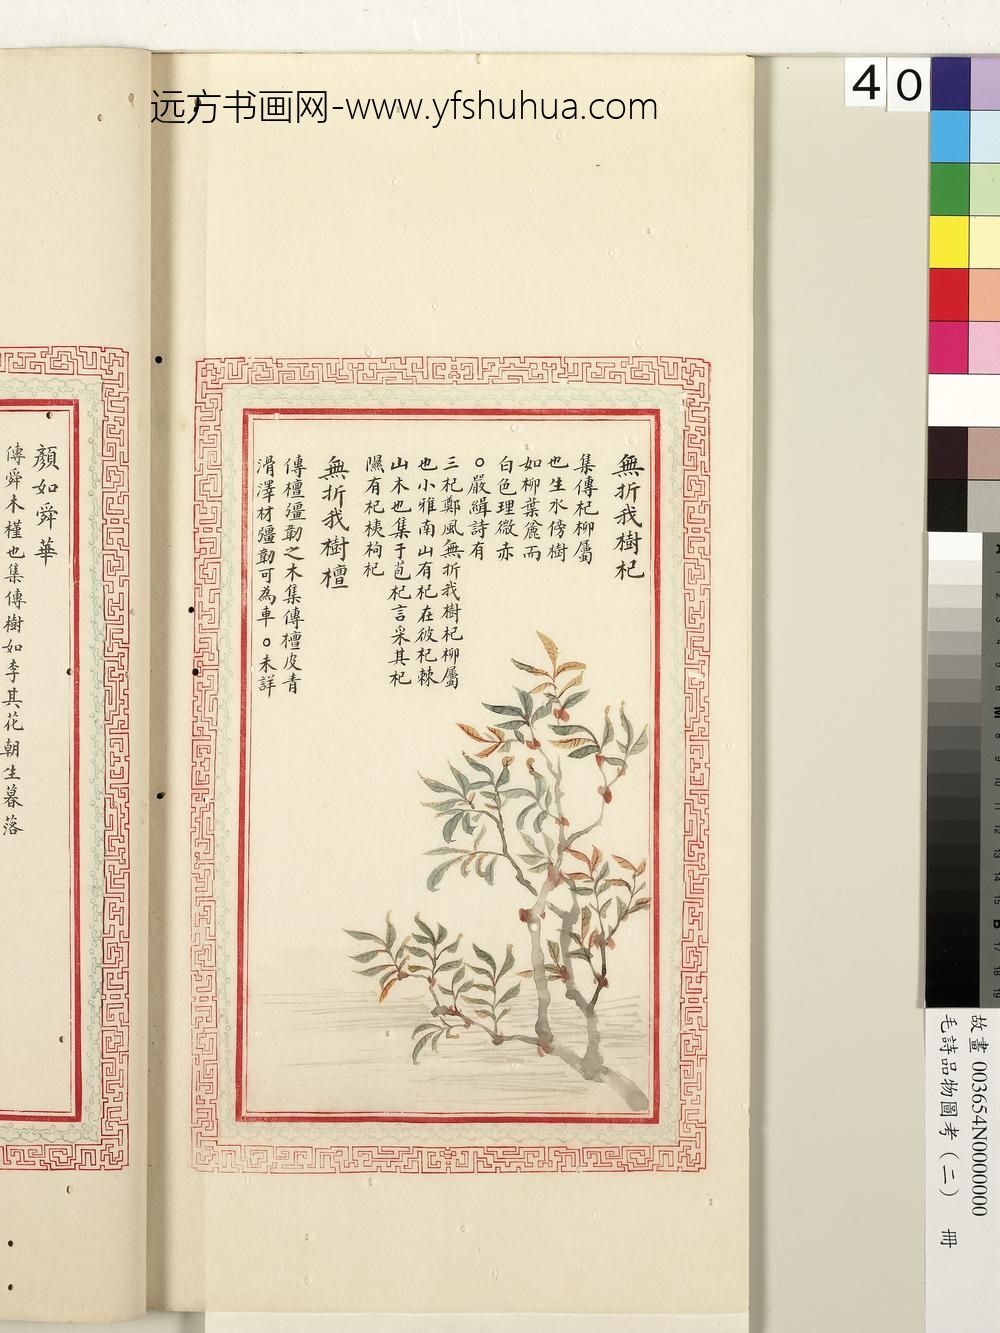 远方书画网-www.yfshuhua.com
40
無折我樹杞
集傳杞柳屬
也生水傍樹
如柳葉麄而
白色理微赤
○嚴緝詩有
三杞鄭風無折我樹杞柳屬
也小雅南山有杞在彼杞棘
山木也集于苞杞言采其杞
隰有杞桋枸杞
無折我樹檀
傳檀彊韌之木集傳檀皮青
滑澤材彊韌可為車○未詳
顏如舜華
傳舜木槿也集傳樹如李其花朝生暮落
故畫 003654N0000000
毛詩品物圖考（二） 冊